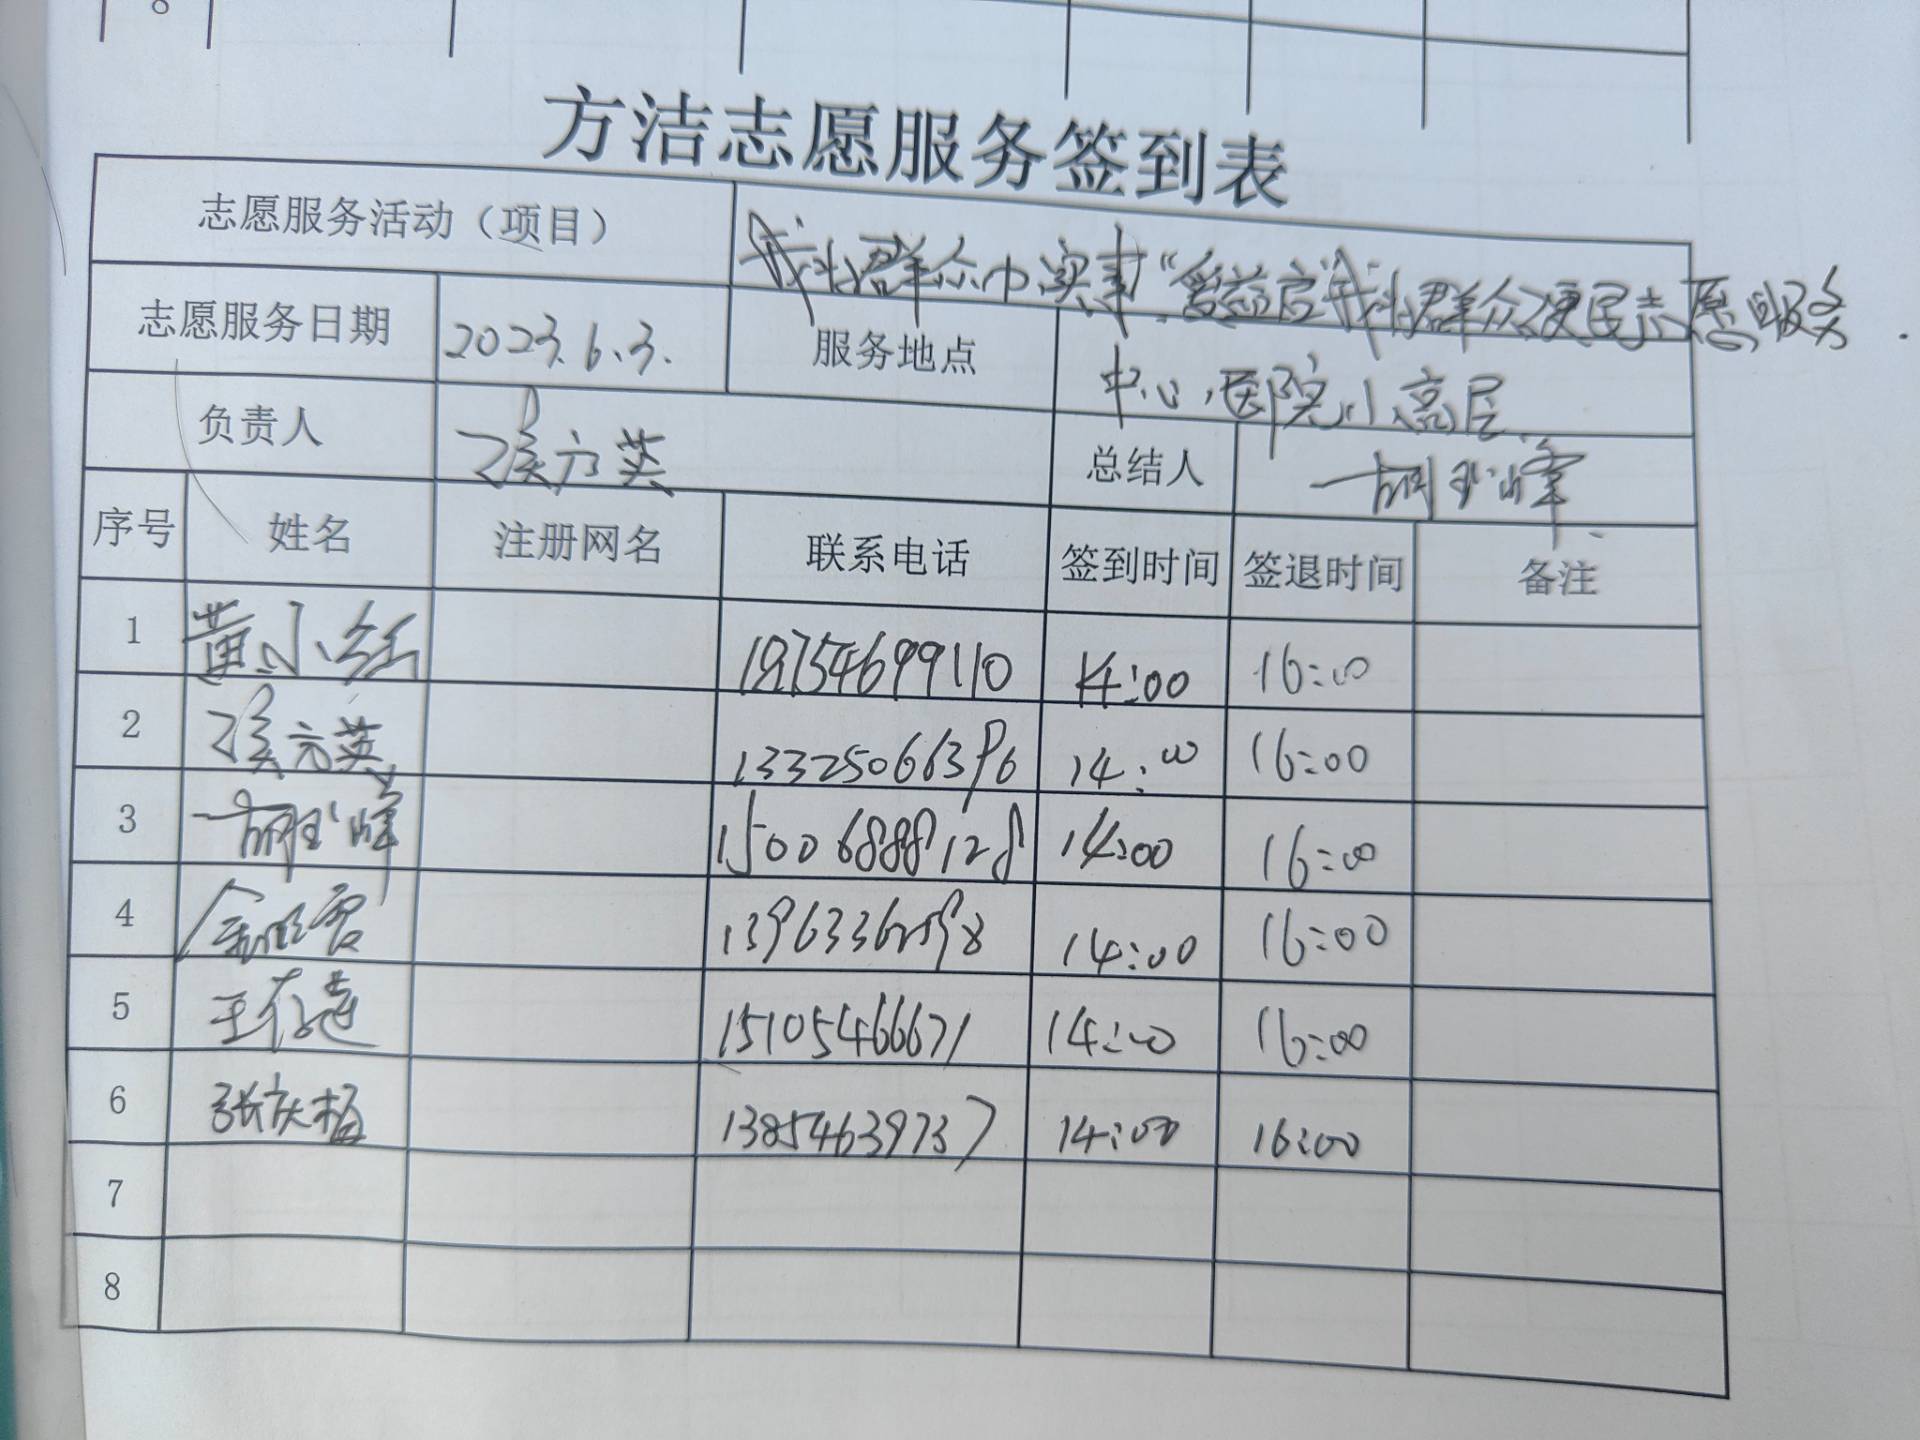 8
方洁志愿服务签到表
志愿服务活动（项目） 我为群众办实事“爱益启”我为群众便民志愿服务.
志愿服务日期 2023.6.3. 服务地点 中心医院小高层
负责人 侯方英 总结人 胡玉峰
序号 姓名 注册网名 联系电话 签到时间 签退时间 备注
1 黄小红 18754699110 14:00 16:00
2 侯方英 13325066396 14:00 16:00
3 胡玉峰 15006888128 14:00 16:00
4 13963362598 14:00 16:00
5 15105466671 14:00 16:00
6 张庆梅 13854639737 14:00 16:00
7
8